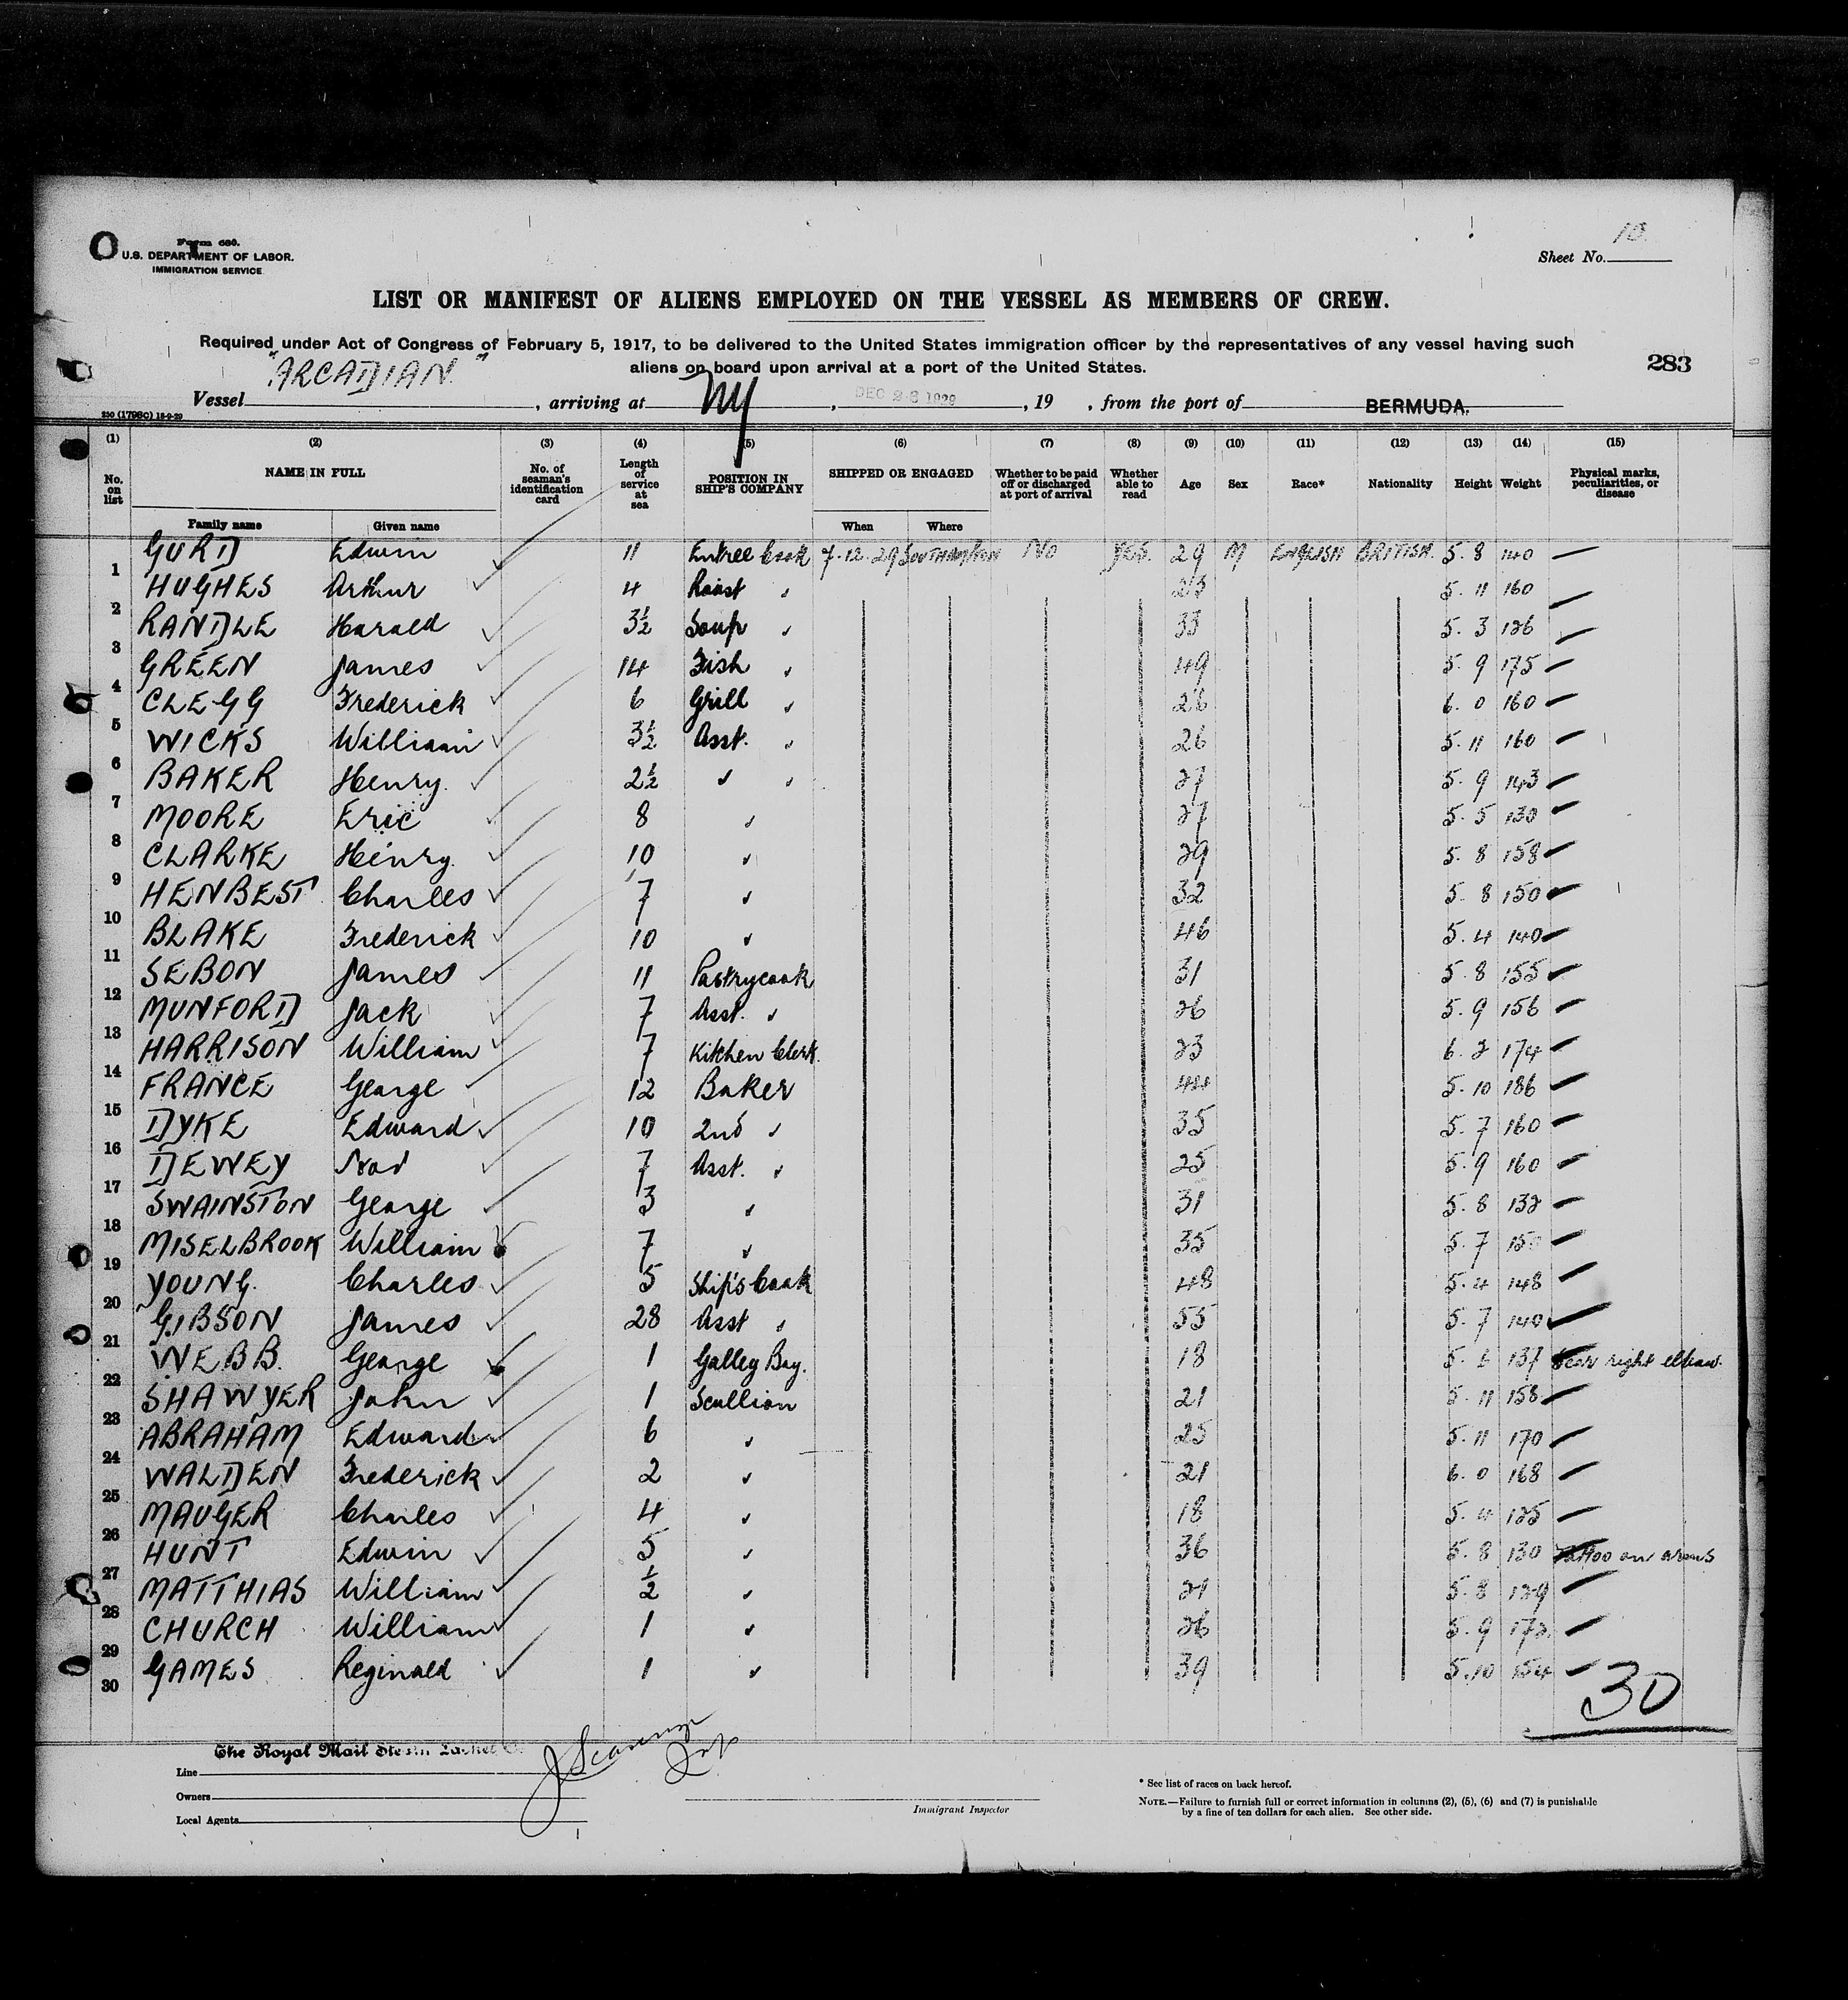 Form 680.
U.S. DEPARTMENT OF LABOR.
IMMIGRATION SERVICE
Sheet No. 10.
LIST OR MANIFEST OF ALIENS EMPLOYED ON THE VESSEL AS MEMBERS OF CREW.
Required under Act of Congress of February 5, 1917, to be delivered to the United States immigration officer by the representatives of any vessel having such
aliens on board upon arrival at a port of the United States.
283
Vessel "ARCADIAN.", arriving at NY, DEC 1929, 19 , from the port of BERMUDA.
(1) (2) (3) (4) (5) (6) (7) (8) (9) (10) (11) (12) (13) (14) (15)
No. on list NAME IN FULL No. of seaman's identification card Length of service at sea POSITION IN SHIP'S COMPANY SHIPPED OR ENGAGED Whether to be paid off or discharged at port of arrival Whether able to read Age Sex Race* Nationality Height Weight Physical marks, peculiarities, or disease
Family name Given name When Where
1 GURD Edwin 11 Entree Cook 7.12.29 SOUTHAMPTON NO YES. 29 M ENGLISH BRITISH. 5. 8 140 —
2 HUGHES Arthur 4 Roast " 5. 11 160 —
3 RANDLE Harald 3½ Soup " 33 5. 3 126 —
4 GREEN James 14 Fish " 49 5. 9 175 —
5 CLEGG Frederick 6 Grill " 26 6. 0 160 —
6 WICKS William 3½ Asst. " 26 5. 11 160 —
7 BAKER Henry. 2½ " " 27 5. 9 143 —
8 MOORE Eric 8 " 27 5. 5 130 —
9 CLARKE Henry. 10 " 29 5. 8 158 —
10 HENBEST Charles 7 " 32 5. 8 150 —
11 BLAKE Frederick 10 " 46 5. 4 140 —
12 SEBON James 11 Pastrycook 31 5. 8 155 —
13 MUNFORD Jack 7 Asst. " 26 5. 9 156 —
14 HARRISON William 7 Kitchen Clerk. 23 6. 2 174 —
15 FRANCE George 12 Baker 44 5. 10 186 —
16 DYKE Edward 10 2nd " 35 5. 7 160 —
17 DEWEY 7 Asst. " 25 5. 9 160 —
18 SWAINSTON George 3 " 31 5. 8 132 —
19 MISELBROOK William 7 " 35 5. 7 —
20 YOUNG. Charles 5 Ship's Cook 48 5. 4 148 —
21 GIBSON James 28 Asst " 55 5. 7 140 —
22 WEBB. George 1 Galley Boy. 18 137 Scar right elbow.
23 SHAWYER John 1 Scullion 21 5. 11 158 —
24 ABRAHAM Edward 6 " 25 5. 11 170 —
25 WALDEN Frederick 2 " 21 6. 0 168 —
26 MAUGER Charles 4 " 18 5. 4 125 —
27 HUNT Edwin 5 " 36 5. 8 130 Tattoo on arms
28 MATTHIAS William ½ " 21 5. 8 129 —
29 CHURCH William 1 " 26 5. 9 172 —
30 GAMES Reginald 1 " 39 5. 10 154 —
30
The Royal Mail Steam Packet Co.
Line
Owners
Local Agents
Immigrant Inspector
* See list of races on back hereof.
NOTE.—Failure to furnish full or correct information in columns (2), (5), (6) and (7) is punishable
by a fine of ten dollars for each alien. See other side.